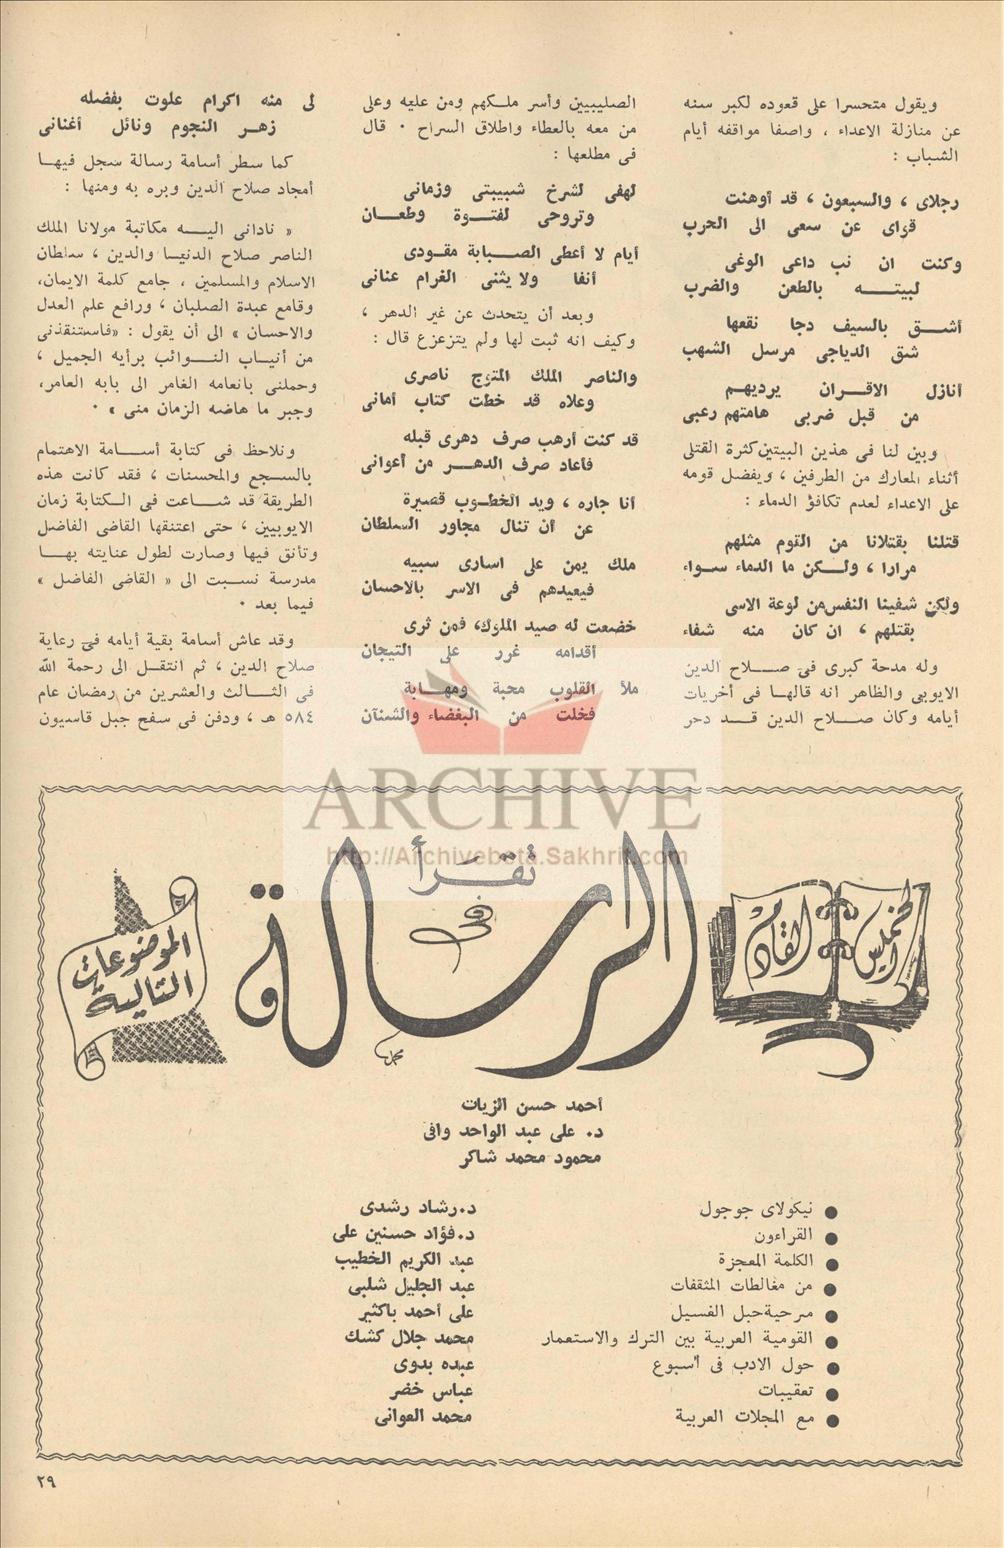 ويقول متحسرا على قعوده لكبر سنه
عن منازلة الاعداء ، واصفا مواقفه أيام
الشباب :
رجلاى ، والسبعون ، قد أوهنت
قواى عن سعى الى الحرب
وكنت ان نب داعى الوغى
لبيتـــه بالطعن والضرب
أشــق بالسيف دجا نقعها
شق الدياجى مرسل الشهب
أنازل الاقــران يرديهـم
من قبل ضربى هامتهم رعبى
وبين لنا فى هذين البيتين كثرة القتلى
أثناء المعارك من الطرفين ، ويفضل قومه
على الاعداء لعدم تكافؤ الدماء :
قتلنا بقتلانا من القوم مثلهم
مرارا ، ولـكن ما الدماء سـواء
ولكن شفينا النفس من لوعة الاسى
بقتلهم ، ان كان منه شفاء
وله مدحة كبرى فى صـــلاح الدين
الايوبى والظاهر انه قالها فى أخريات
أيامه وكان صـــلاح الدين قـــد دحر
الصليبيين وأسر ملـكهم ومن عليه وعلى
من معه بالعطاء واطلاق السراح ٠ قال
فى مطلعها :
لهفى لشرخ شبيبتى وزمانى
وتروحى لفتــوة وطعــان
أيام لا أعطى الصــبابة مقـودى
أنفا ولا يثنى الغرام عنانى
وبعد أن يتحدث عن غير الدهر ،
وكيف انه ثبت لها ولم يتزعزع قال :
والناصر الملك المتوج ناصرى
وعلاه قد خطت كتاب أمانى
قد كنت أرهب صرف دهرى قبله
فأعاد صرف الدهــر من أعوانى
أنا جاره ، ويد الخطـوب قصيرة
عن أن تنال مجاور السلطان
ملك يمن على اسارى سيبه
فيعيدهم فى الاسر بالاحسان
خضعت له صيد الملوك، فمن ثرى
أقدامه غرر على التيجان
ملأ القلوب محبة ومهــابة
فخلت من البغضاء والشنآن
لى منه اكرام علوت بفضله
زهـر النجوم ونائل أغنانى
كما سطر أسامة رسالة سجل فيهـا
أمجاد صلاح الدين وبره به ومنها :
« نادانى اليــه مكاتبة مولانا الملك
الناصر صلاح الدنيـا والدين ، سلطان
الاسلام والمسلمين ، جامع كلمة الايمان،
وقامع عبدة الصلبان ، ورافع علم العدل
والاحسان » الى أن يقول : «فاستنقذنى
من أنياب النـــوائب برأيه الجميل ،
وحملنى بانعامه الغامر الى بابه العامر،
وجبر ما هاضه الزمان منى » ٠
ونلاحظ فى كتابة أســامة الاهتمام
بالسـجع والمحسنات ، فقد كانت هذه
الطريقة قد شـاعت فى الـكتابة زمان
الايوبيين ، حتى اعتنقها القاضى الفاضل
وتأنق فيها وصارت لطول عنايته بهـا
مدرسة نسـبت الى « القاضى الفاضل »
فيما بعد ٠
وقد عاش أسامة بقية أيامه فى رعاية
صلاح الدين ، ثم انتقـل الى رحمة الله
فى الثـالث والعشرين من رمضان عام
٥٨٤ هـ ، ودفن فى سفح جبل قاسيون
ARCHIVE
http://Archivebeta.Sakhrit.com
الخميس القادم
تقرأ
فى
الرسالة
الموضوعات
التالية
أحمد حسن الزيات
د٠ على عبد الواحد وافى
محمود محمد شاكر
● نيكولاى جوجول د٠رشاد رشدى
● القراءون د٠فؤاد حسنين على
● الكلمة المعجزة عبد الكريم الخطيب
● من مغالطات المثقفات عبد الجليل شلبى
● مسرحية حبل الغسيل على أحمد باكثير
● القومية العربية بين الترك والاستعمار محمد جلال كشك
● حول الادب فى أسبوع عبده بدوى
● تعقيبات عباس خضر
● مع المجلات العربية محمد العوانى
٢٩